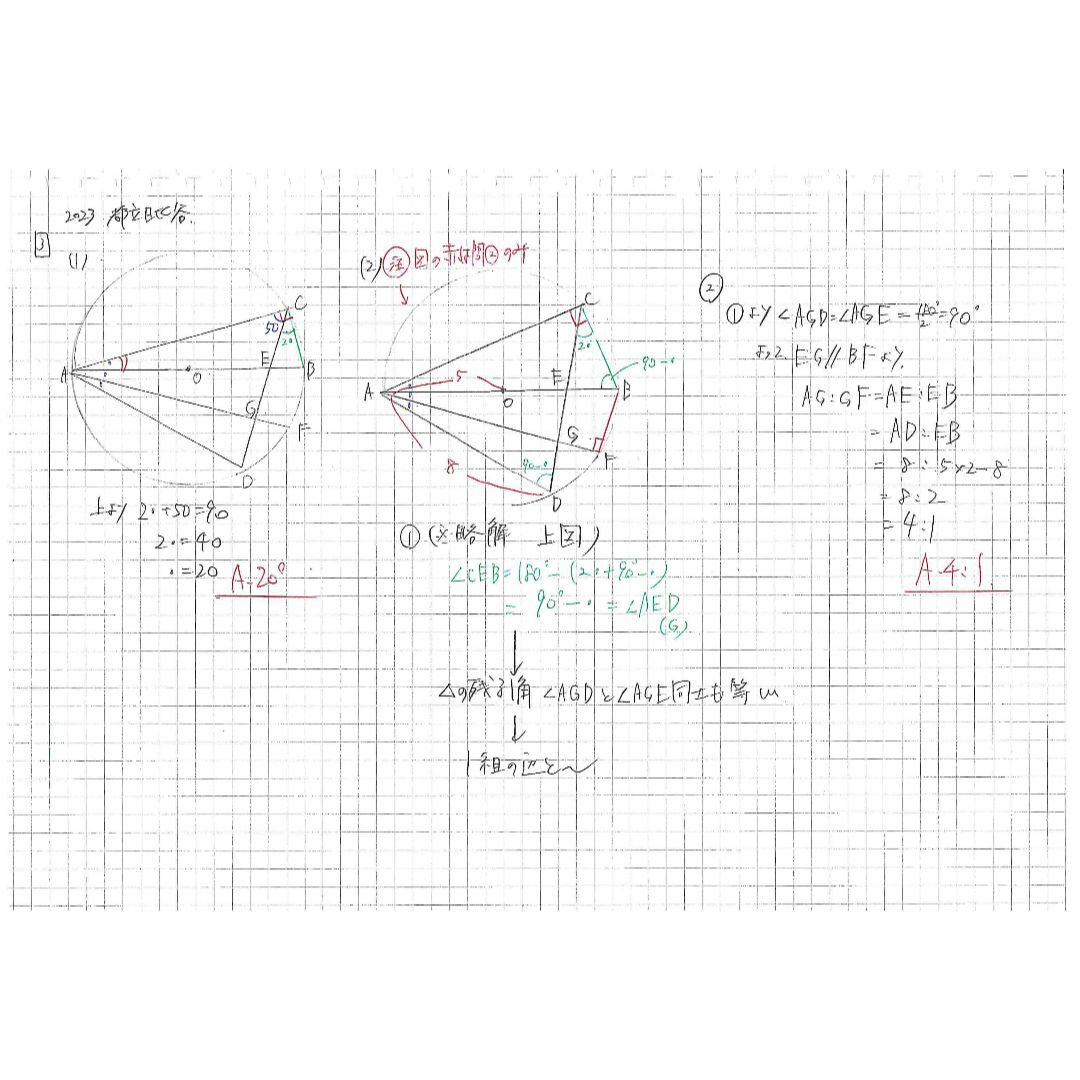 2023 都立日比谷.
3
(1)
C
50
2•
E
A
O
B
G
F
D
上より 2•+50=90
2•=40
•=20
A.20°
(2) 注 図の赤は問②のみ
C
2•
90-•
5
E
A
O
B
G
8
90-•
F
D
① (※略解 上図)
∠CEB=180°-(2•+90°-•)
= 90°-• = ∠AED
(G)
↓
△の残り角 ∠AGDと∠AGE同士も等しい
↓
1組の辺と〜
②
①より ∠AGD=∠AGE=180°/2=90°
よって EG//BFより
AG:GF=AE:EB
=AD:EB
= 8:5×2-8
= 8:2
= 4:1
A.4:1.